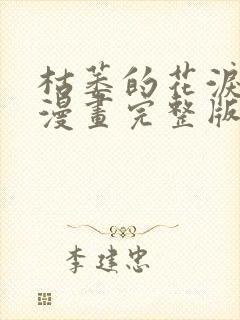 枯萎的花淚
漫畫完整版
李建忠